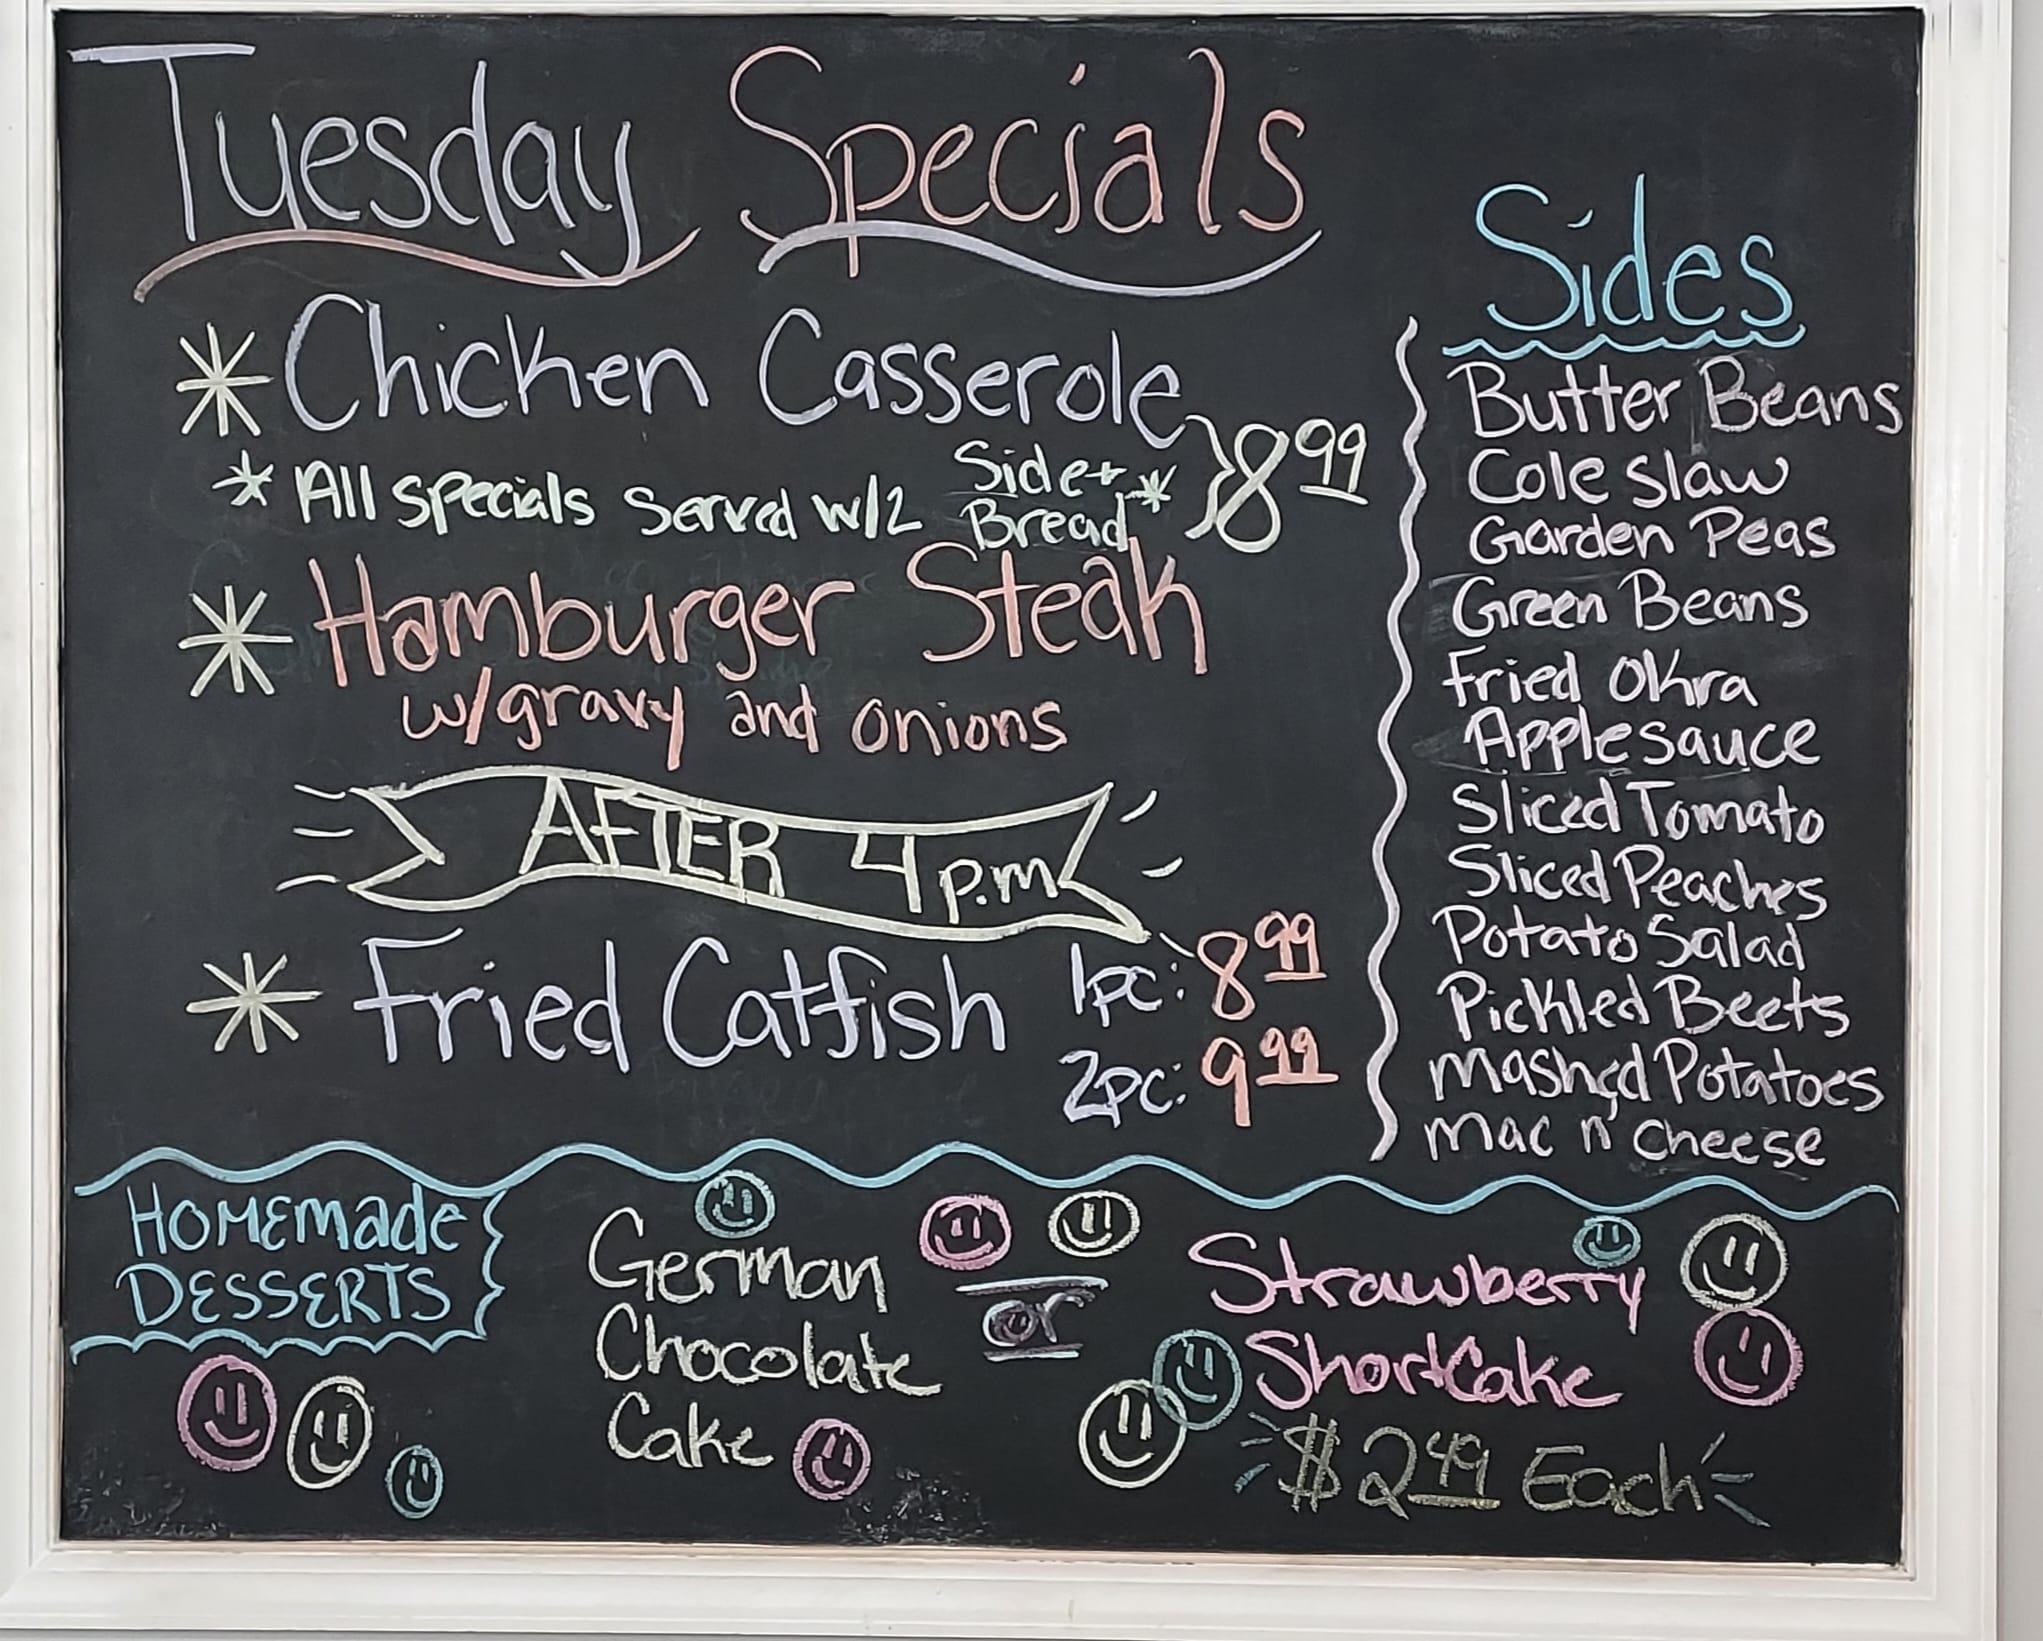 Tuesday Specials
* Chicken Casserole
* All specials Served w/2 Side + Bread * } 8 99
* Hamburger Steak
w/gravy and onions
AFTER 4 p.m
* Fried Catfish
1pc: 8 99
2pc: 9 99
Sides
Butter Beans
Cole slaw
Garden Peas
Green Beans
Fried Okra
Applesauce
Sliced Tomato
Sliced Peaches
Potato Salad
Pickled Beets
Mashed Potatoes
Mac n' Cheese
HOMEmade
DESSERTS
German
Chocolate
Cake
or
Strawberry
ShortCake
$2 49 Each